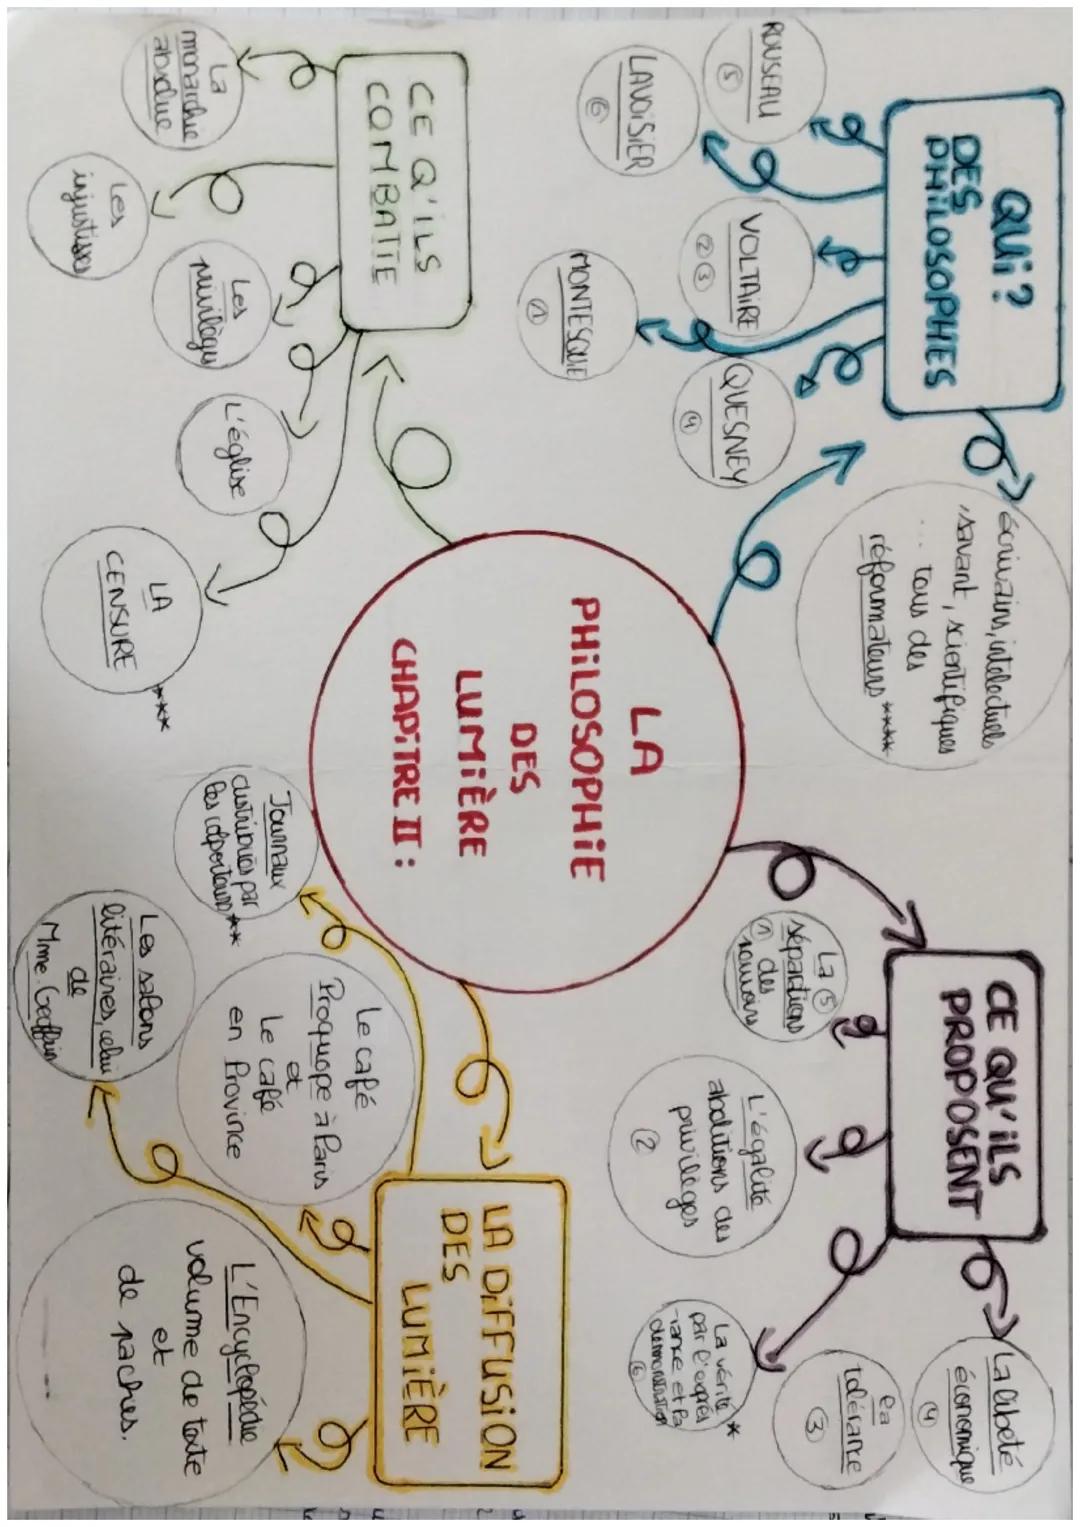 LA
PHILOSOPHIE
DES
LUMIÈRE
CHAPITRE II :
QUI?
DES
PHILOSOPHES
écrivains, intelectuels
savant, scientifiques
... tous des
réformateurs ****
ROUSEAU
⑤
LAVOISIER
⑥
VOLTAIRE
② ③
MONTESQUIE
①
QUESNEY
④
CE QU'ILS
PROPOSENT
La ⑤
séparations
① des
pouvoirs
L'égalité
abolitions des
privilèges
②
La vérité *
par l'expé
rance et la
démonstration
⑥
la
tolérance
③
La libeté
économique
④
CE Q'ILS
COMBATTE
La
monarchie
absolue
Les
injustices
Les
privilèges
L'église
LA
CENSURE
***
LA DIFFUSION
DES
LUMIÈRE
Journaux
distribués par
les colporteurs **
Le café
Proquope à Paris
et
Le café
en Province
Les salons
litéraires, celui
de
Mme. Geoffrin
L'Encyclopédie
volume de texte
et
de